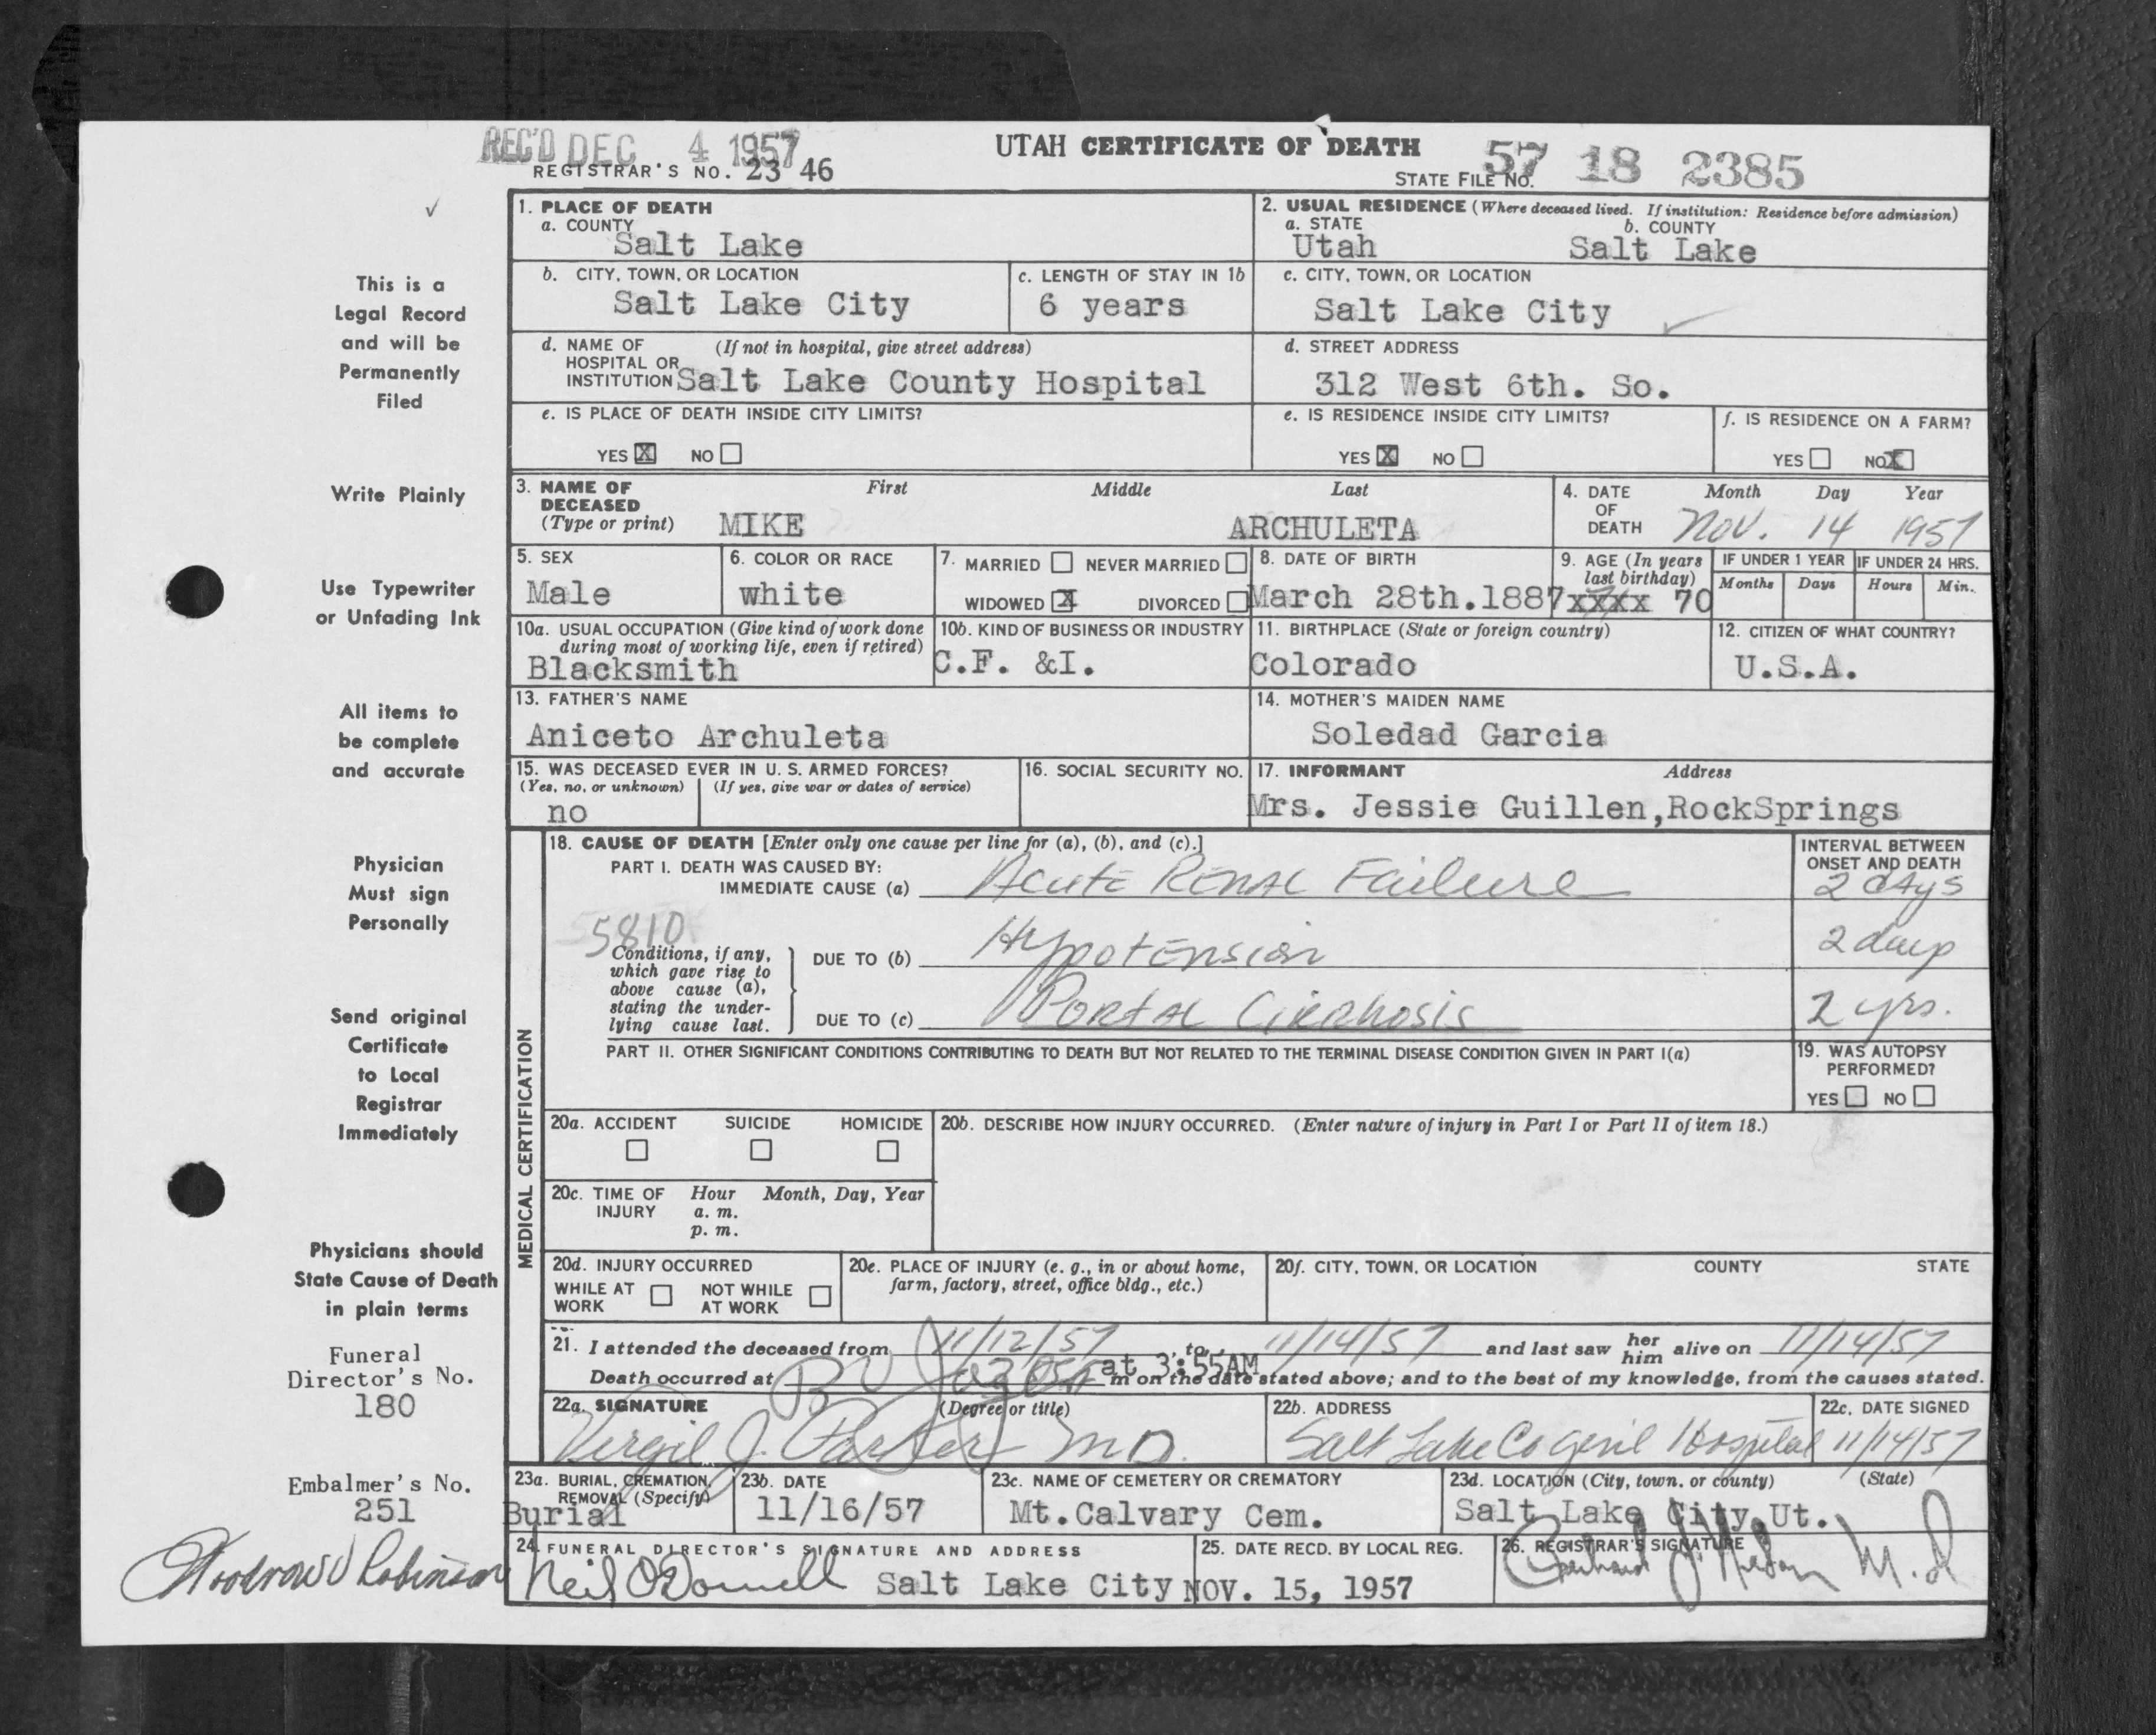 REC'D DEC 4 1957
UTAH CERTIFICATE OF DEATH
REGISTRAR'S NO. 23 46
STATE FILE NO. 57 18 2385
1. PLACE OF DEATH
a. COUNTY
Salt Lake
2. USUAL RESIDENCE (Where deceased lived. If institution: Residence before admission)
a. STATE b. COUNTY
Utah Salt Lake
b. CITY, TOWN, OR LOCATION
Salt Lake City
c. LENGTH OF STAY IN 1b
6 years
c. CITY, TOWN, OR LOCATION
Salt Lake City
d. NAME OF (If not in hospital, give street address)
HOSPITAL OR
INSTITUTION Salt Lake County Hospital
d. STREET ADDRESS
312 West 6th. So.
e. IS PLACE OF DEATH INSIDE CITY LIMITS?
YES X NO
e. IS RESIDENCE INSIDE CITY LIMITS?
YES X NO
f. IS RESIDENCE ON A FARM?
YES NO X
3. NAME OF DECEASED (Type or print)
First Middle Last
MIKE ARCHULETA
4. DATE OF DEATH
Month Day Year
Nov. 14 1957
5. SEX
Male
6. COLOR OR RACE
white
7. MARRIED NEVER MARRIED
WIDOWED X DIVORCED
8. DATE OF BIRTH
March 28th.1887
9. AGE (In years last birthday)
xxxx 70
IF UNDER 1 YEAR
Months Days
IF UNDER 24 HRS.
Hours Min.
10a. USUAL OCCUPATION (Give kind of work done during most of working life, even if retired)
Blacksmith
10b. KIND OF BUSINESS OR INDUSTRY
C.F. &I.
11. BIRTHPLACE (State or foreign country)
Colorado
12. CITIZEN OF WHAT COUNTRY?
U.S.A.
13. FATHER'S NAME
Aniceto Archuleta
14. MOTHER'S MAIDEN NAME
Soledad Garcia
15. WAS DECEASED EVER IN U. S. ARMED FORCES?
(Yes, no, or unknown) (If yes, give war or dates of service)
no
16. SOCIAL SECURITY NO.
17. INFORMANT Address
Mrs. Jessie Guillen,RockSprings
MEDICAL CERTIFICATION
18. CAUSE OF DEATH [Enter only one cause per line for (a), (b), and (c).]
PART I. DEATH WAS CAUSED BY:
IMMEDIATE CAUSE (a) Acute Renal Failure
INTERVAL BETWEEN ONSET AND DEATH
2 days
5810
Conditions, if any, which gave rise to above cause (a), stating the underlying cause last.
DUE TO (b) Hypotension
2 days
DUE TO (c) Portal Cirrhosis
2 yrs.
PART II. OTHER SIGNIFICANT CONDITIONS CONTRIBUTING TO DEATH BUT NOT RELATED TO THE TERMINAL DISEASE CONDITION GIVEN IN PART I(a)
19. WAS AUTOPSY PERFORMED?
YES NO
20a. ACCIDENT SUICIDE HOMICIDE
20b. DESCRIBE HOW INJURY OCCURRED. (Enter nature of injury in Part I or Part II of item 18.)
20c. TIME OF INJURY
Hour Month, Day, Year
a. m.
p. m.
20d. INJURY OCCURRED
WHILE AT WORK NOT WHILE AT WORK
20e. PLACE OF INJURY (e. g., in or about home, farm, factory, street, office bldg., etc.)
20f. CITY, TOWN, OR LOCATION COUNTY STATE
21. I attended the deceased from 11/12/57, to, 11/14/57 and last saw her him alive on 11/14/57
Death occurred at at 3:55AM m on the date stated above; and to the best of my knowledge, from the causes stated.
22a. SIGNATURE (Degree or title)
Virgil J. Parker MD.
22b. ADDRESS
Salt Lake Co Genl Hospital
22c. DATE SIGNED
11/14/57
23a. BURIAL, CREMATION, REMOVAL (Specify)
Burial
23b. DATE
11/16/57
23c. NAME OF CEMETERY OR CREMATORY
Mt.Calvary Cem.
23d. LOCATION (City, town, or county) (State)
Salt Lake City Ut.
24. FUNERAL DIRECTOR'S SIGNATURE AND ADDRESS
Neil O'Donnell Salt Lake City
25. DATE RECD. BY LOCAL REG.
NOV. 15, 1957
26. REGISTRAR'S SIGNATURE
M.D
This is a
Legal Record
and will be
Permanently
Filed
Write Plainly
Use Typewriter
or Unfading Ink
All items to
be complete
and accurate
Physician
Must sign
Personally
Send original
Certificate
to Local
Registrar
Immediately
Physicians should
State Cause of Death
in plain terms
Funeral
Director's No.
180
Embalmer's No.
251
Woodrow Robinson